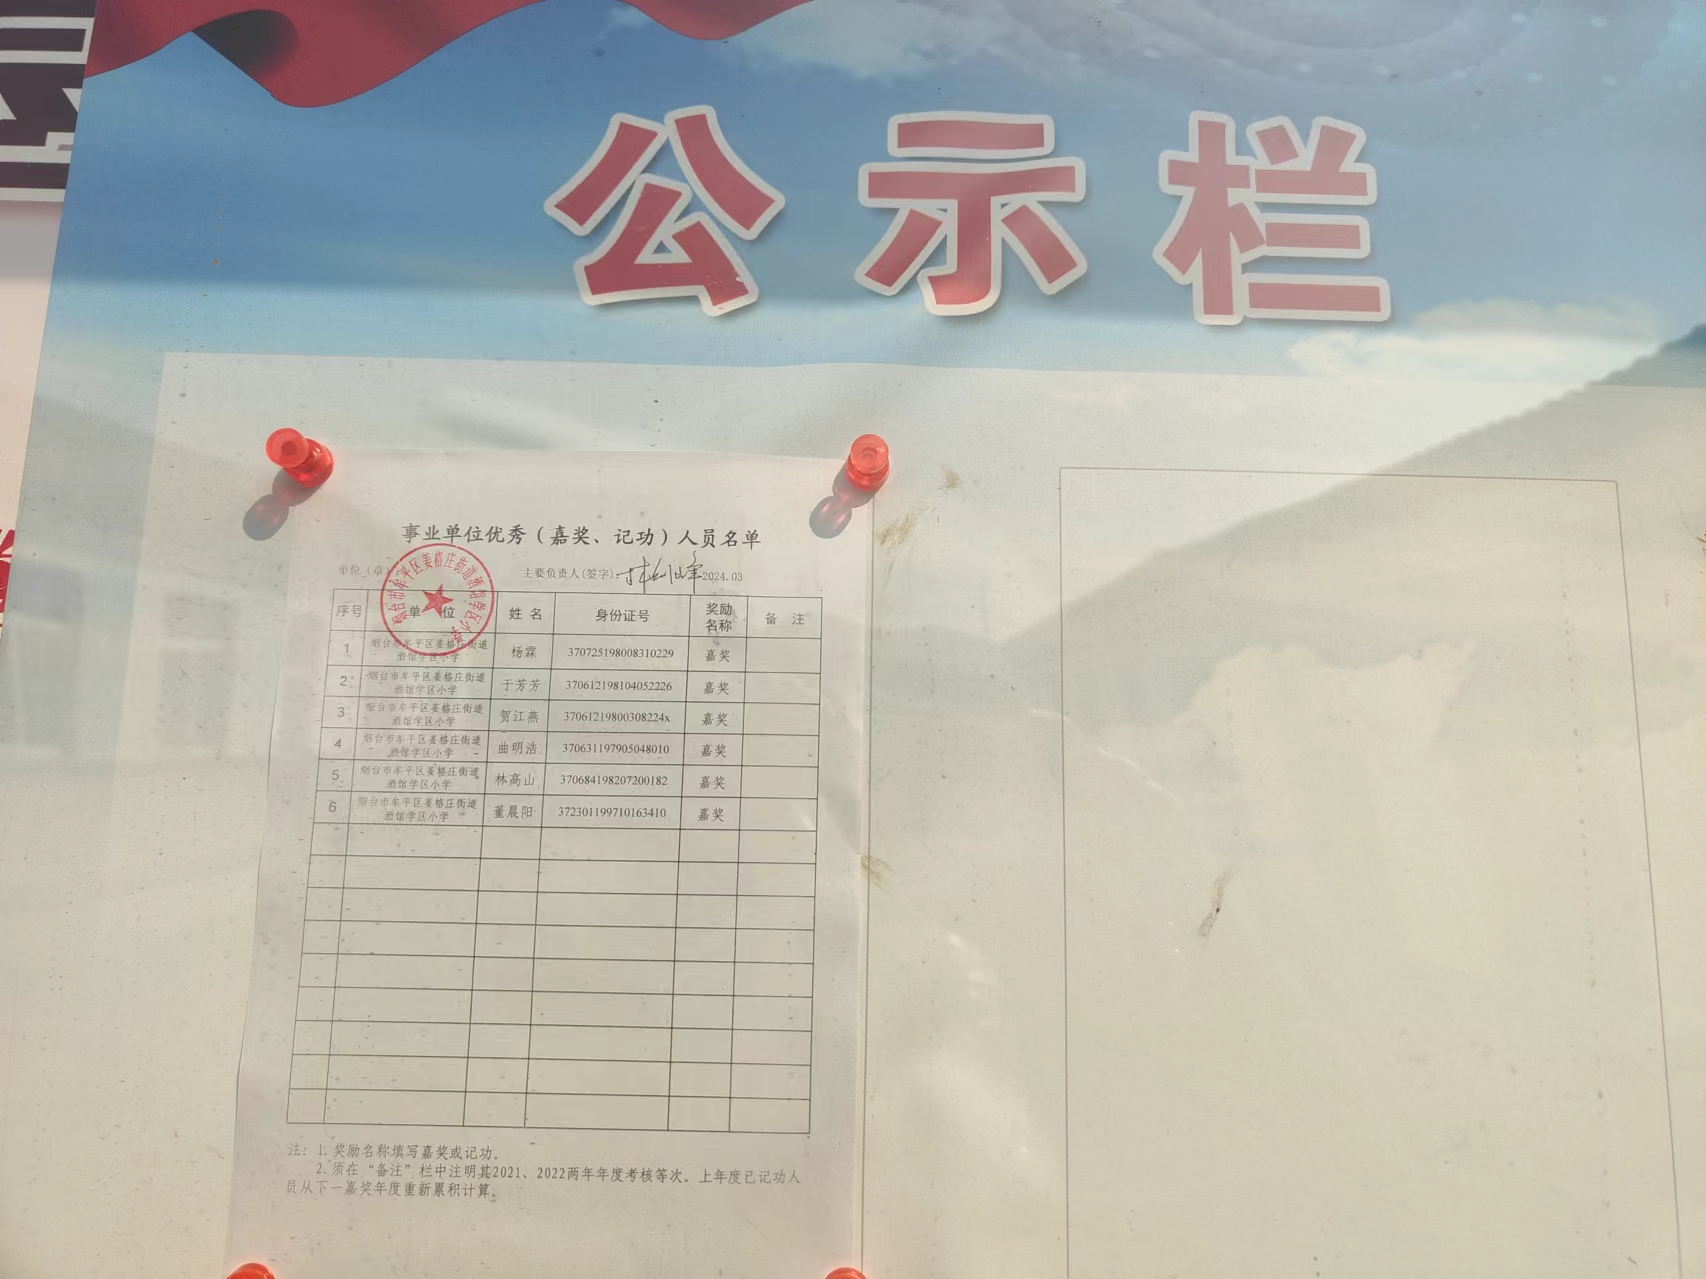 公示栏
事业单位优秀（嘉奖、记功）人员名单
单位（章） 主要负责人(签字): 2024.03
序号 单 位 姓 名 身份证号 奖励名称 备 注
1 烟台市牟平区姜格庄街道酒馆学区小学 杨霖 370725198008310229 嘉奖
2 烟台市牟平区姜格庄街道酒馆学区小学 于芳芳 370612198104052226 嘉奖
3 烟台市牟平区姜格庄街道酒馆学区小学 贺江燕 37061219800308224x 嘉奖
4 烟台市牟平区姜格庄街道酒馆学区小学 曲明浩 370631197905048010 嘉奖
5 烟台市牟平区姜格庄街道酒馆学区小学 林高山 370684198207200182 嘉奖
6 烟台市牟平区姜格庄街道酒馆学区小学 董晨阳 372301199710163410 嘉奖
注：1.奖励名称填写嘉奖或记功。
2.须在“备注”栏中注明其2021、2022两年年度考核等次。上年度已记功人
员从下一嘉奖年度重新累积计算。